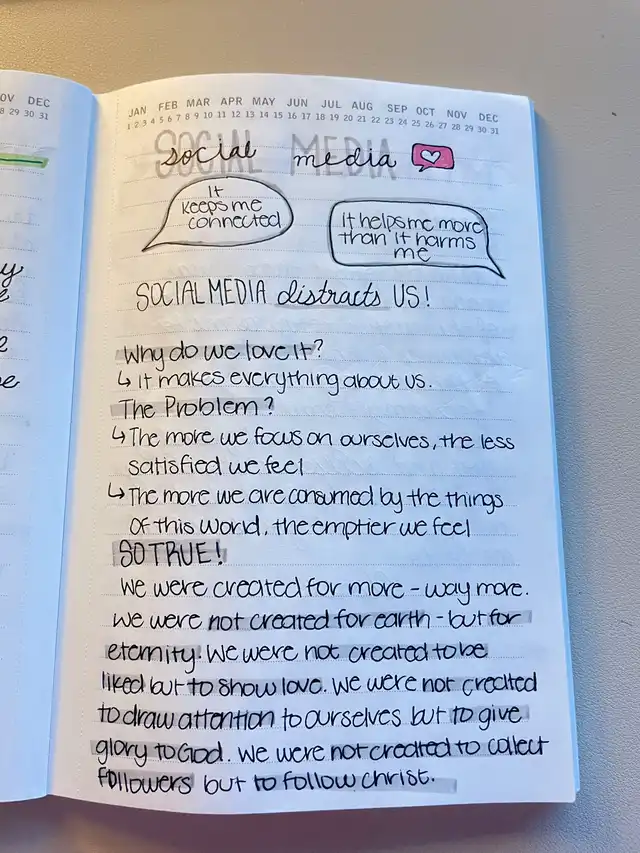 OV DEC
8 29 30 31
JAN FEB MAR APR MAY JUN JUL AUG SEP OCT NOV DEC
1 2 3 4 5 6 7 8 9 10 11 12 13 14 15 16 17 18 19 20 21 22 23 24 25 26 27 28 29 30 31
SOCIAL MEDIA
social media
It
keeps me
connected
it helps me more
than it harms
me
SOCIAL MEDIA distracts US!
Why do we love it?
↳ it makes everything about us.
The Problem?
↳ The more we focus on ourselves, the less
satisfied we feel
↳ The more we are consumed by the things
of this world, the emptier we feel
SO TRUE!
We were created for more - way more.
We were not created for earth - but for
eternity. We were not created to be
liked but to show love. We were not created
to draw attention to ourselves but to give
glory to God. We were not created to collect
followers but to follow christ.